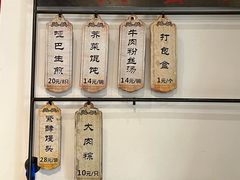 哑巴生煎
20元/8只
荠菜馄饨
14元/碗
牛肉粉丝汤
14元/碗
打包盒
1元/个
紧酵馒头
28元/锅
大肉粽
10元/只